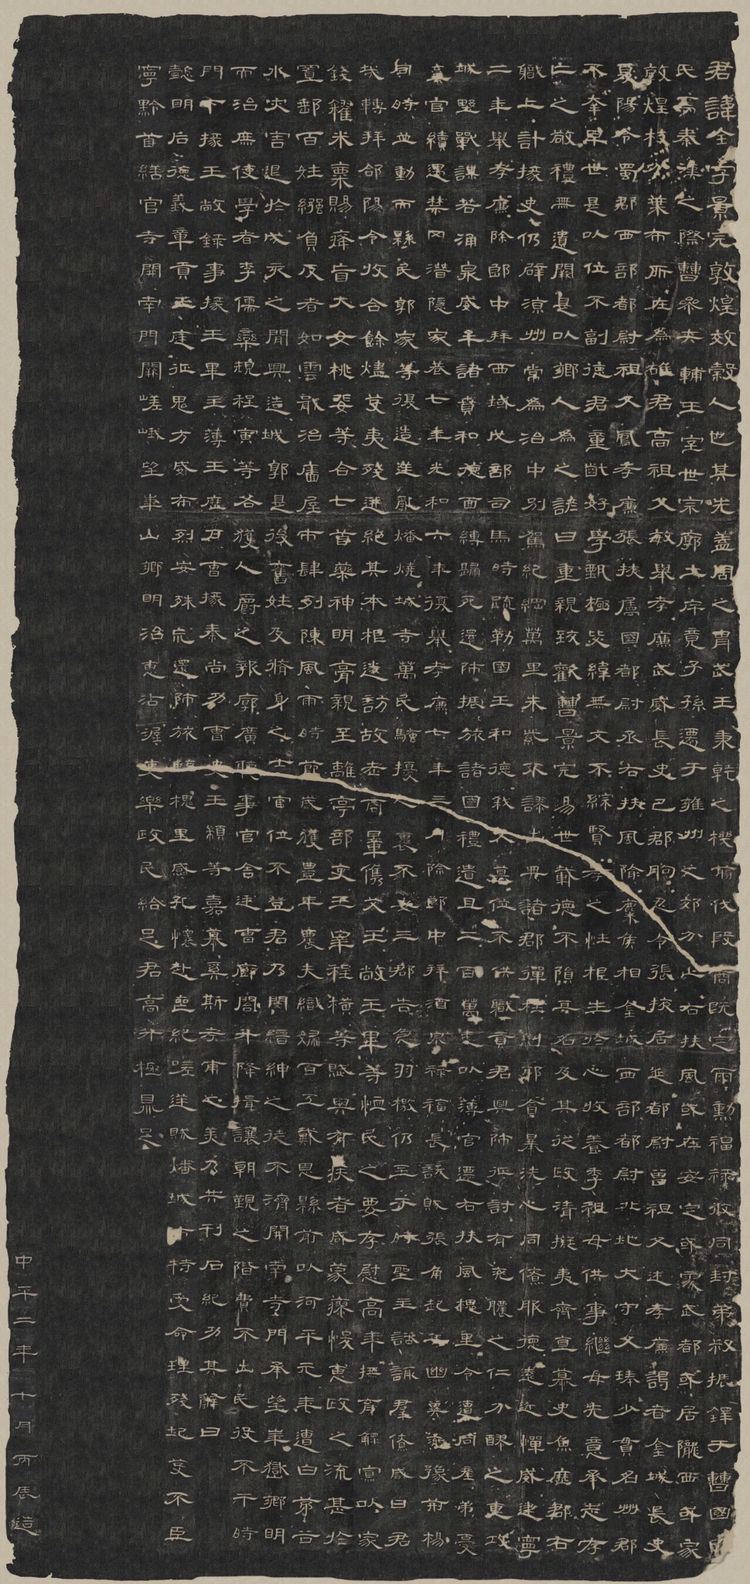 君諱全字景完敦煌效穀人也其先蓋周之冑武王秉乾之機翦伐殷商既定爾勳福祿攸同封弟叔振鐸于曹國因
氏焉秦漢之際曹參夾輔王室世宗廓土斥竟子孫遷于雍州之郊分止右扶風或在安定或處武都或居隴西或家
敦煌枝分葉布所在為雄君高祖父敏舉孝廉武威長史巴郡朐忍令張掖居延都尉曾祖父述孝廉謁者金城長史
夏陽令蜀郡西部都尉祖父鳳孝廉張掖屬國都尉丞右扶風隃麋侯相金城西部都尉北地大守父琫少貫名州郡
不幸早世是以位不副德君童齔好學甄極毖緯無文不綜賢孝之性根生於心收養季祖母供事繼母先意承志存
亡之敬禮無遺闕是以鄉人為之諺曰重親致歡曹景完易世載德不隕其名及其從政清擬夷齊直慕史魚歷郡右
職上計掾史仍辟涼州常為治中別駕紀綱萬里朱紫不謬出典諸郡彈枉糾邪貪暴洗心同僚服德遠近憚威建寧
二年舉孝廉除郎中拜西域戊部司馬時疏勒國王和德弒父篡位不供職貢君興師征討有兗膿之仁分醪之惠攻
城野戰謀若涌泉威牟諸賁和德面縛歸死還師振旅諸國禮遺且二百萬悉以薄官遷右扶風槐里令遭同產弟憂
棄官續遇禁冈潛隱家巷七年光和六年復舉孝廉七年三月除郎中拜酒泉祿福長訞賊張角起兵幽冀兗豫荊楊
同時並動而縣民郭家等復造逆亂燔燒城寺萬民騷擾人裹不安三郡告急羽檄仍至于時聖主諮諏群僚咸曰君
哉轉拜郃陽令收合餘燼芟夷殘迸絕其本根遂訪故老商量儁艾王敞王畢等恤民之要存慰高年撫育鰥寡以家
錢糴米粟賜癃盲大女桃婓等合七首藥神明膏親至離亭部吏王宰程橫等賦與有疾者咸蒙瘳悛惠政之流甚於
置郵百姓繈負反者如雲戢治廧屋市肆列陳風雨時節歲獲豐年農夫織婦百工戴恩縣前以河平元年遭白茅谷
水災害退於戌亥之間興造城郭是後舊姓及脩身之士官位不登君乃閔縉紳之徒不濟開南寺門承望華嶽鄉明
而治庶使學者李儒欒規程寅等各獲人爵之報廓廣聽事官舍廷曹廊閤升降揖讓朝覲之階費不出民役不干時
門下掾王敞錄事掾王畢主薄王歷戶曹掾秦尚功曹史王顓等嘉慕奚斯考甫之美乃共刊石紀功其辭曰
懿明后德義章貢王庭征鬼方威布烈安殊荒還師旅臨槐里感孔懷赴喪紀嗟逆賊燔城市特受命理殘圮芟不臣
寧黔首繕官寺開南門闕嵯峨望華山鄉明治惠沾渥吏樂政民給足君高升極鼎足
中平二年十月丙辰造